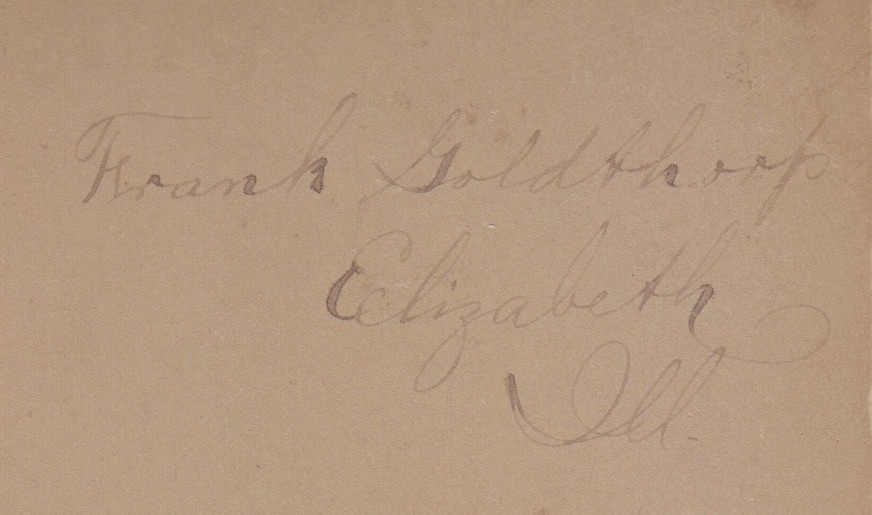 Frank Goldthorp
Elizabeth
Ill.